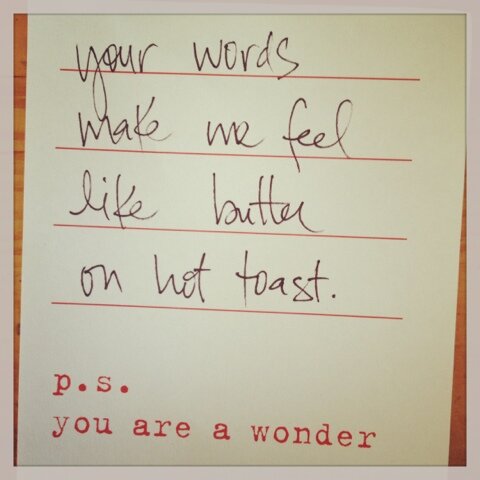 your words
make me feel
like butter
on hot toast.
p.s.
you are a wonder